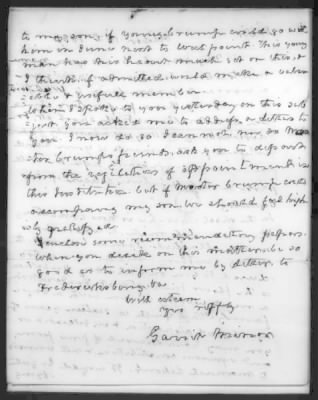 to my son, if young Crump could go with
him in June next to West point. This young
man has his heart much set on this, &
I think if admitted would make a valu
able & usefull member.
When I spoke to you yesterday on this sub
ject you asked me to address a letter to
you. I now do so. I can not, nor do Mas
ter Crumps friends, ask you to depart
from the regulations of appointment in
this Institution but if Master Crump could
accompany my son we should feel high
ly gratifyed.
I enclose some recommendatory papers.
When you decide on this matter be so
good as to inform me by letter, to
Fredericksburg, Va
With esteem
yrs
Garrit Minor